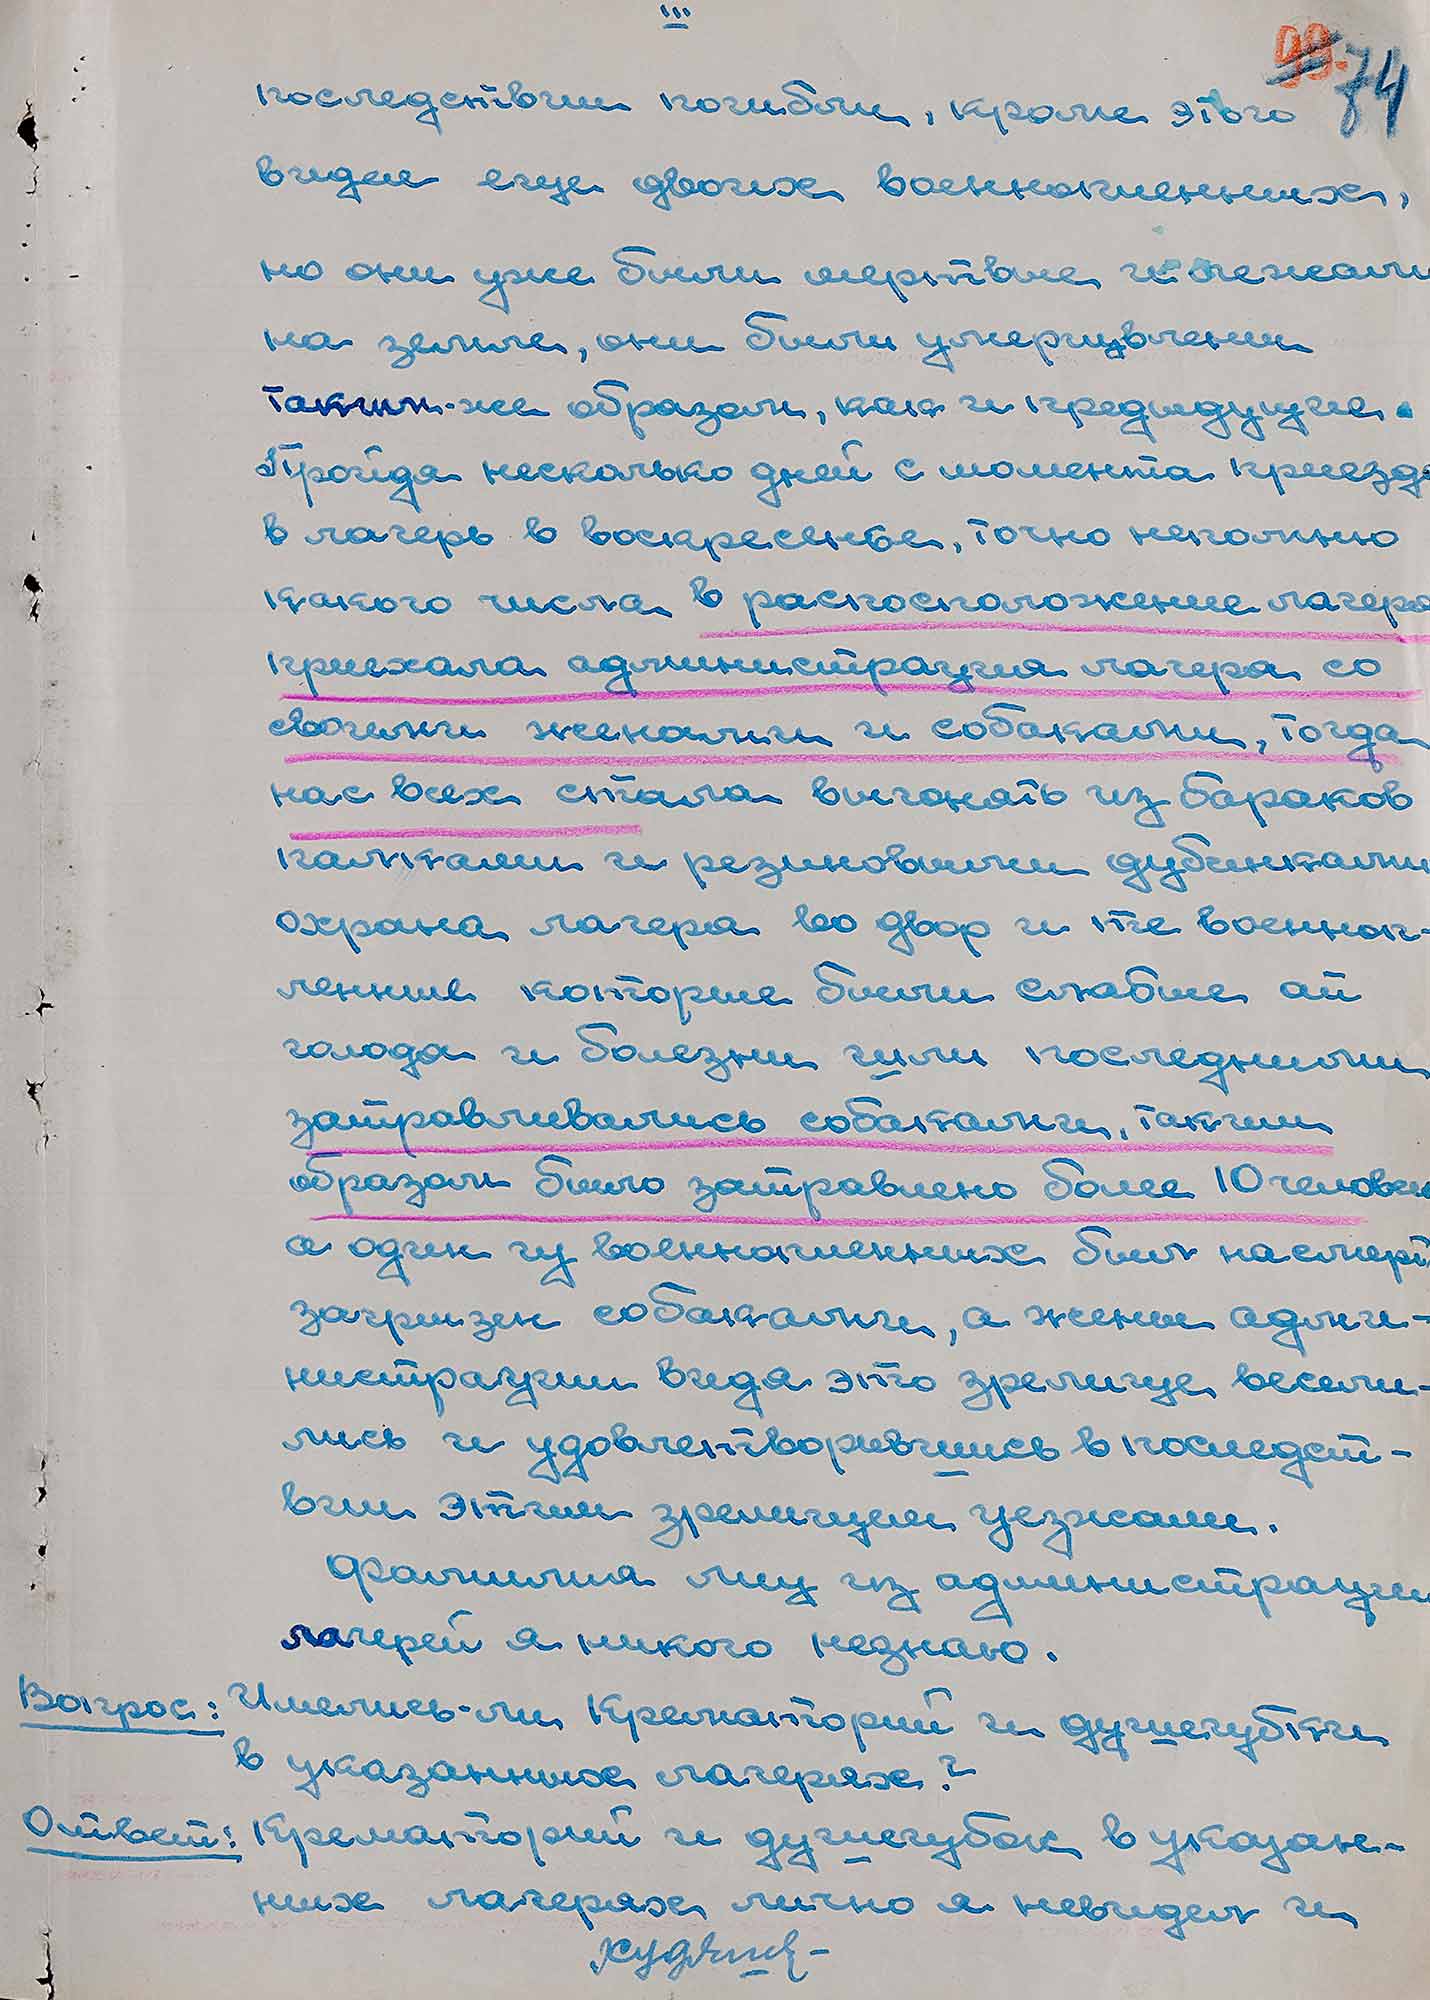 III
99. 74
последствии погибли, кроме этого
видел еще двоих военнопленных,
но они уже были мертвые и лежали
на земле, они были умерщвлены
таким-же образом, как и предыдущие.
Пройдя несколько дней с момента приезда
в лагерь в воскресенье, точно непомню
какого числа в распосположение лагеря
приехала администрация лагеря со
своими женами и собаками, тогда
нас всех стала выгонять из бараков
палками и резиновыми дубинками
охрана лагеря во двор и те военноп-
ленные которые были слабые от
голода и болезни шли последними
затравливались собаками, таким
образом было затравлено более 10 человек
а один из военнопленных был насмерть
загрызен собаками, а жены адми-
нистрации видя это зрелище весели-
лись и удовлетворившись в последст-
вии этим зрелищем уезжали.
Фамилия лиц из администрации
лагерей я никого незнаю.
Вопрос: Имелись-ли крематорий и душегубки
в указанных лагерях?
Ответ: Крематорий и душегубок в указан-
ных лагерях лично я невидел и